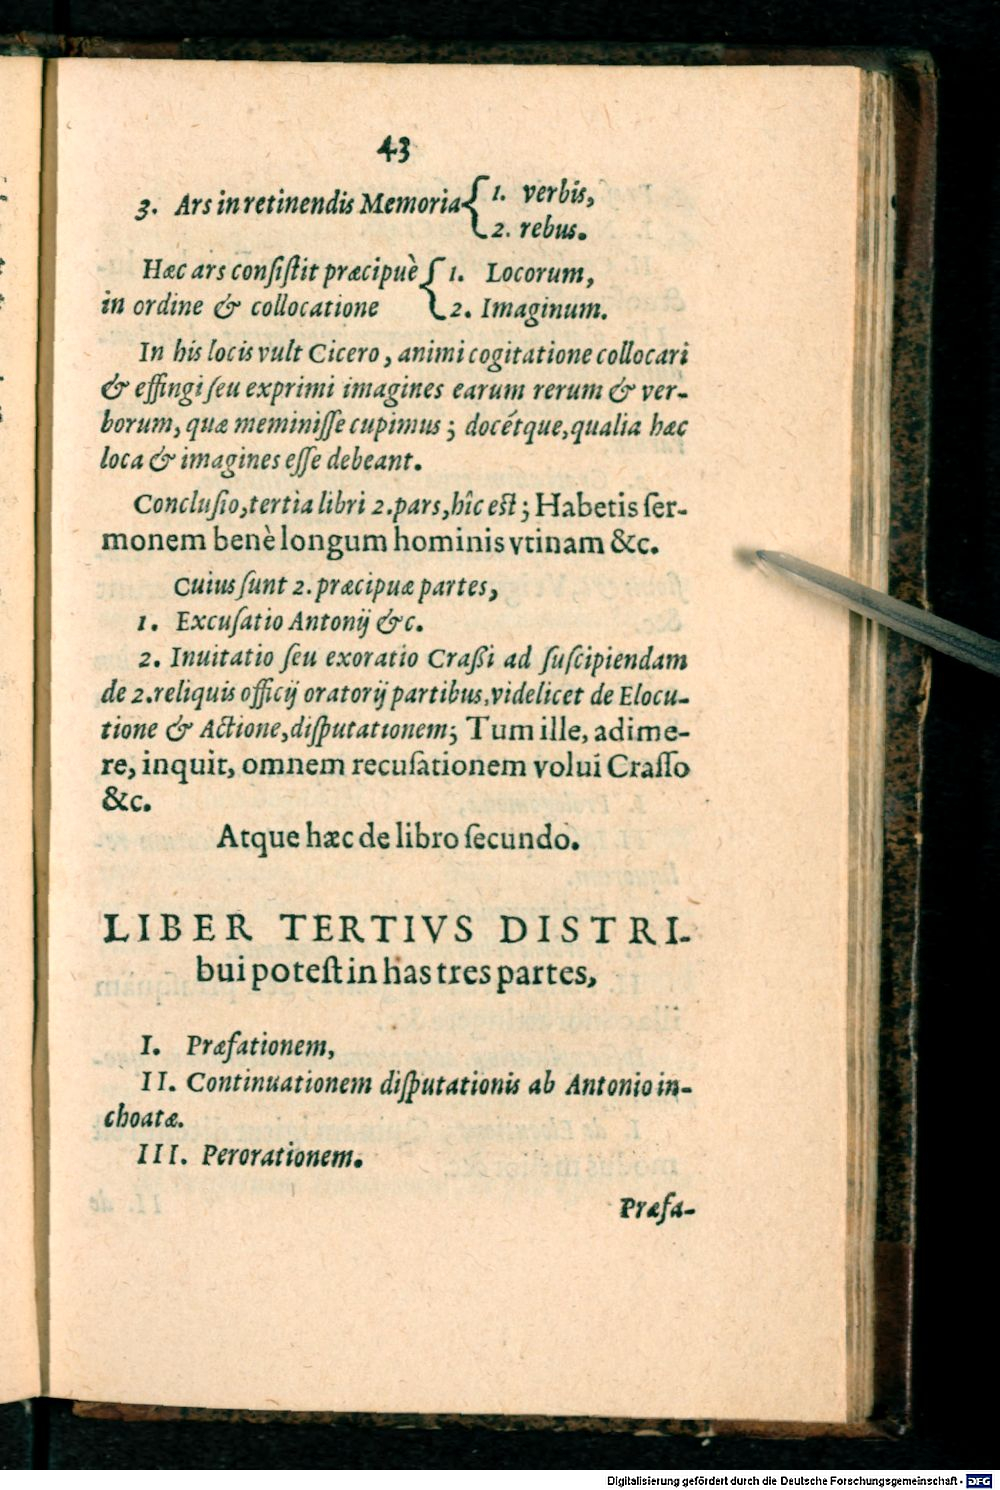 43
3. Ars in retinendis Memoria { 1. verbis,
2. rebus.
Hæc ars consistit præcipuè { 1. Locorum,
in ordine & collocatione 2. Imaginum.
In his locis vult Cicero, animi cogitatione collocari
& effingi seu exprimi imagines earum rerum & ver-
borum, quæ meminisse cupimus; docétque, qualia hæc
loca & imagines esse debeant.
Conclusio, tertia libri 2. pars, hîc est; Habetis ser-
monem benè longum hominis vtinam &c.
Cuius sunt 2. præcipuæ partes,
1. Excusatio Antonij &c.
2. Inuitatio seu exoratio Crassi ad suscipiendam
de 2. reliquis officij oratorij partibus, videlicet de Elocu-
tione & Actione, disputationem; Tum ille, adime-
re, inquit, omnem recusationem volui Crasso
&c.
Atque hæc de libro secundo.
LIBER TERTIVS DISTRI-
bui potest in has tres partes,
I. Præfationem,
II. Continuationem disputationis ab Antonio in-
choatæ.
III. Perorationem.
Præfa-
Digitalisierung gefördert durch die Deutsche Forschungsgemeinschaft - DFG